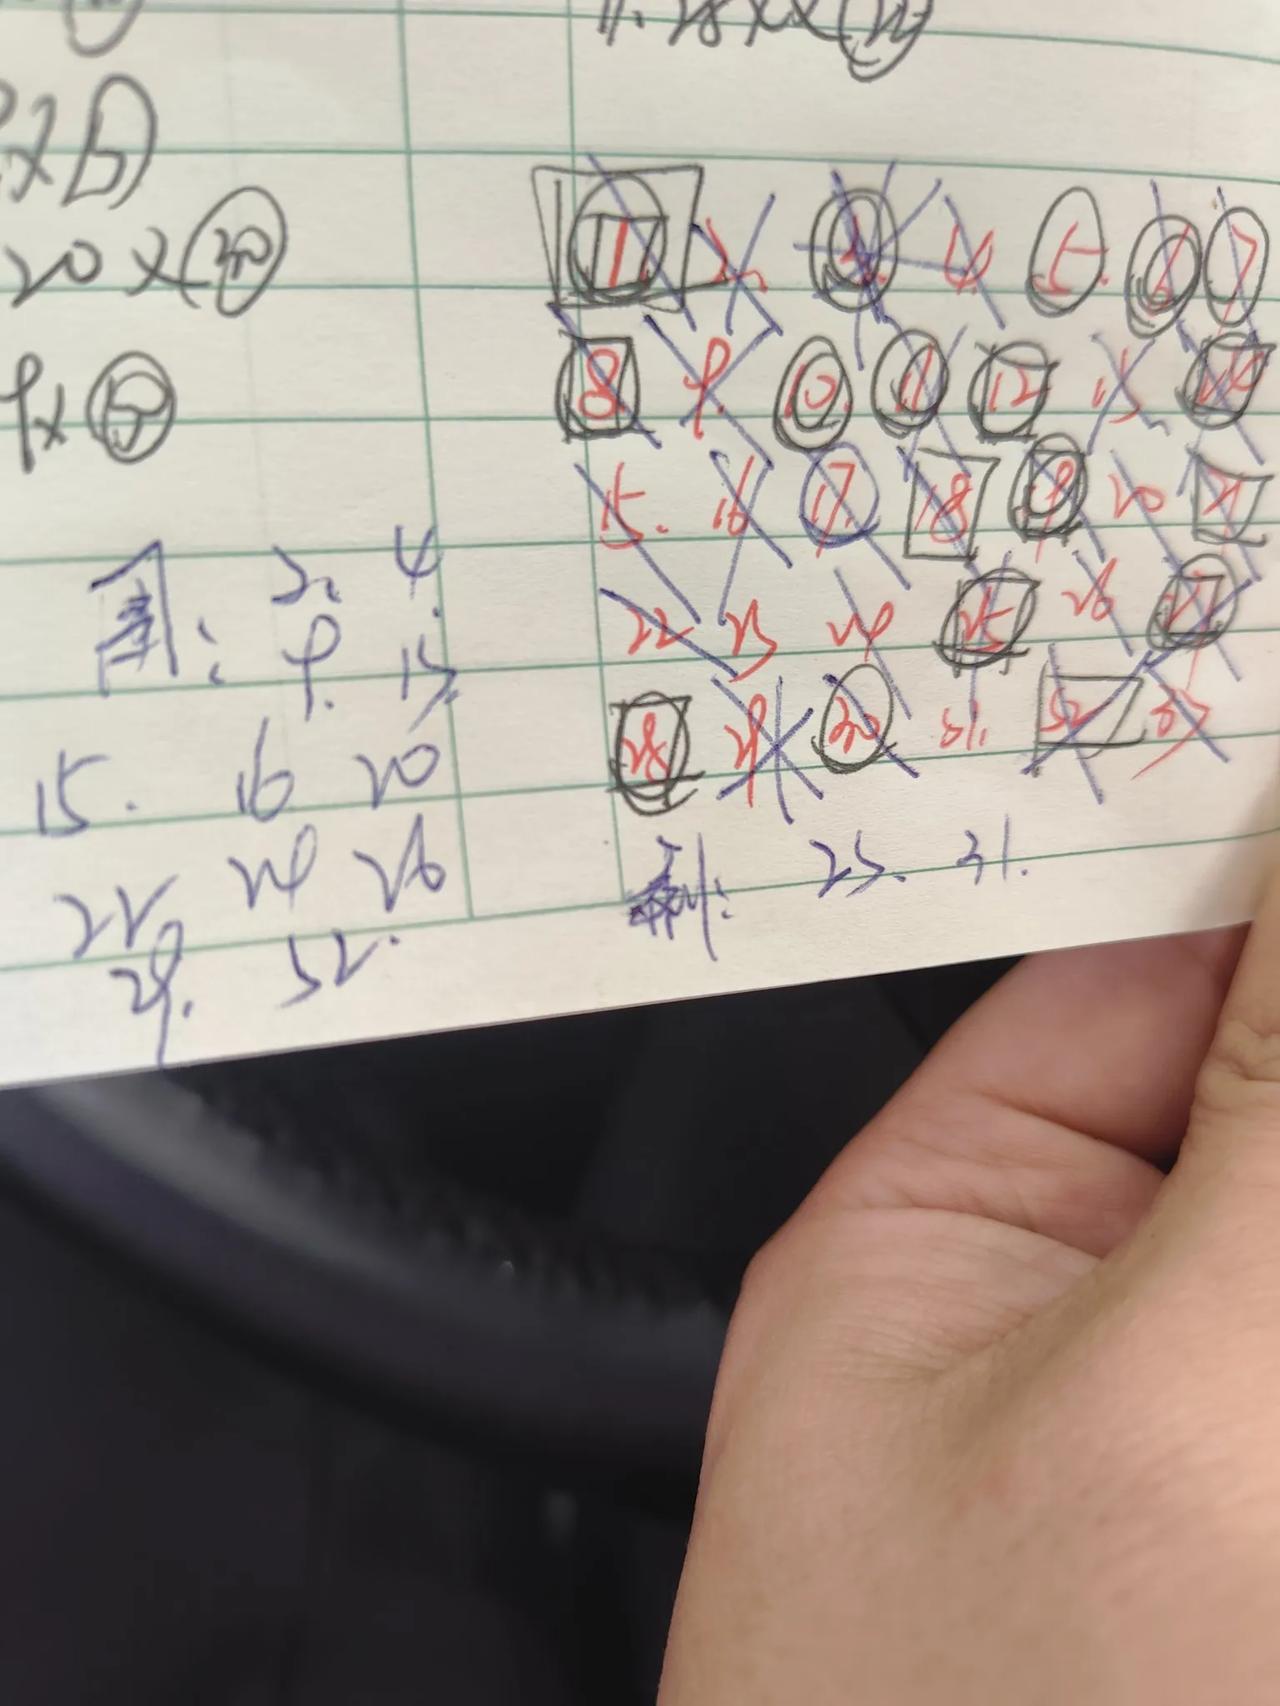 11. 28 X X
20 X 30
9 X
1 2. 3. 4. 5. 6 7
8 9. 10. 11 12 13 14
15. 16 17. 18 19 20 21
22 23 24 25 26 27
28 29 30 31. 32 33
: 2. 4
9. 13
15. 16 20
22 24 26
29. 32.
剩: 23. 31.